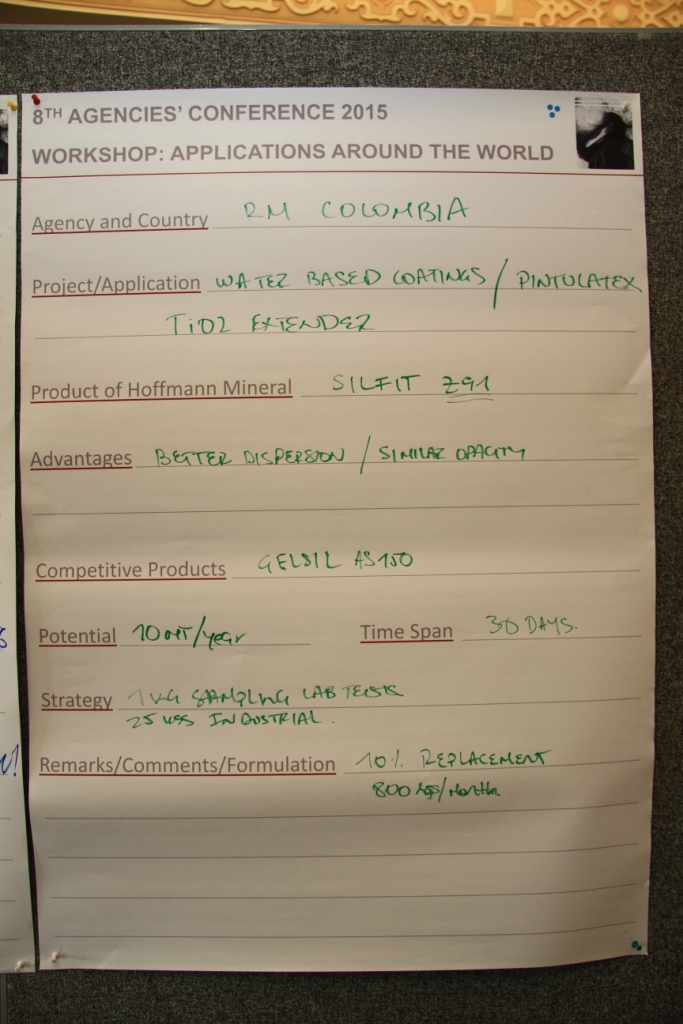 8TH AGENCIES' CONFERENCE 2015
WORKSHOP: APPLICATIONS AROUND THE WORLD
Agency and Country RM COLOMBIA
Project/Application WATER BASED COATINGS / PINTULATEX
TiO2 EXTENDER
Product of Hoffmann Mineral SILFIT Z91
Advantages BETTER DISPERSION / SIMILAR OPACITY
Competitive Products GELSIL AS100
Potential 10 MT/year Time Span 30 DAYS.
Strategy 1 KG SAMPLING LAB TESTS
25 KGS INDUSTRIAL.
Remarks/Comments/Formulation 10% REPLACEMENT
800 kgs/Month